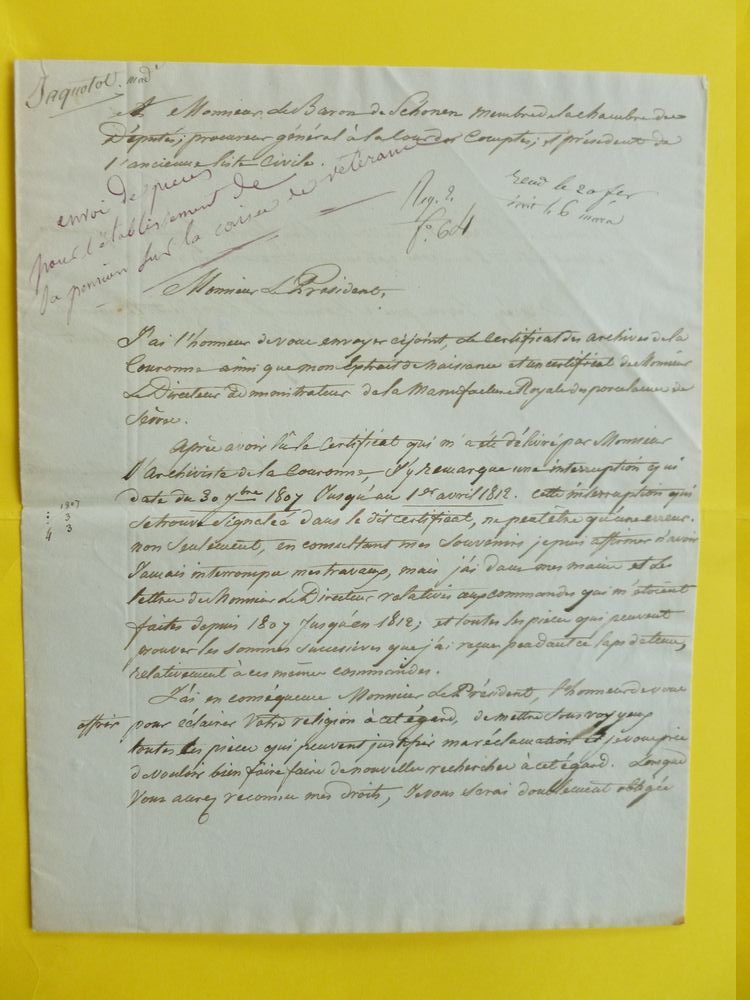 Jaquotot. mad.
A Monsieur Le Baron de Schonen membre de la chambre des
Députés; procureur général à la Cour des Comptes; et président de
l'ancienne liste Civile.
envoi de pieces
pour l'établissement de
sa pension sur la caisse de vétérance
Reg. 2.
f° 64
le 20 fev
le 6 mars
Monsieur Le Président,
J'ai l'honneur de vous envoyer cijoint, le Certificat des archives de la
Couronne ainsi que mon Extrait de Naissance et un certificat de Monsieur
Le Directeur administrateur de la Manufacture Royale de porcelaine de
Sèvres.
Après avoir lû le Certificat qui m'a été délivré par Monsieur
l'archiviste de la Couronne, j'y remarque une interruption qui
date du 30 7bre 1807 Jusqu'au 1er avril 1812. cette interruption qui
se trouve signalée dans le dit certificat, ne peut être qu'une erreur.
non seulement, en consultant mes souvenirs je puis affirmer n'avoir
Jamais interrompu mes travaux, mais j'ai dans mes mains et des
lettres de Monsieur Le Directeur relatives aux commandes qui m'étoient
faites depuis 1807 Jusqu'en 1812; et toutes les pièces qui peuvent
prouver les sommes successives que j'ai reçues pendant ce laps de tems,
relativement à ces mêmes commandes.
1807
3
4 3
J'ai, en conséquence Monsieur Le Président, l'honneur de vous
offrir pour éclairer Votre religion à cet égard, de mettre sous vos yeux
toutes les pièces qui peuvent justifier ma réclamation et je vous prie
de vouloir bien faire faire de nouvelles recherches à cet égard. Lorsque
Vous aurez reconnu mes droits, Je vous serai doublement obligée